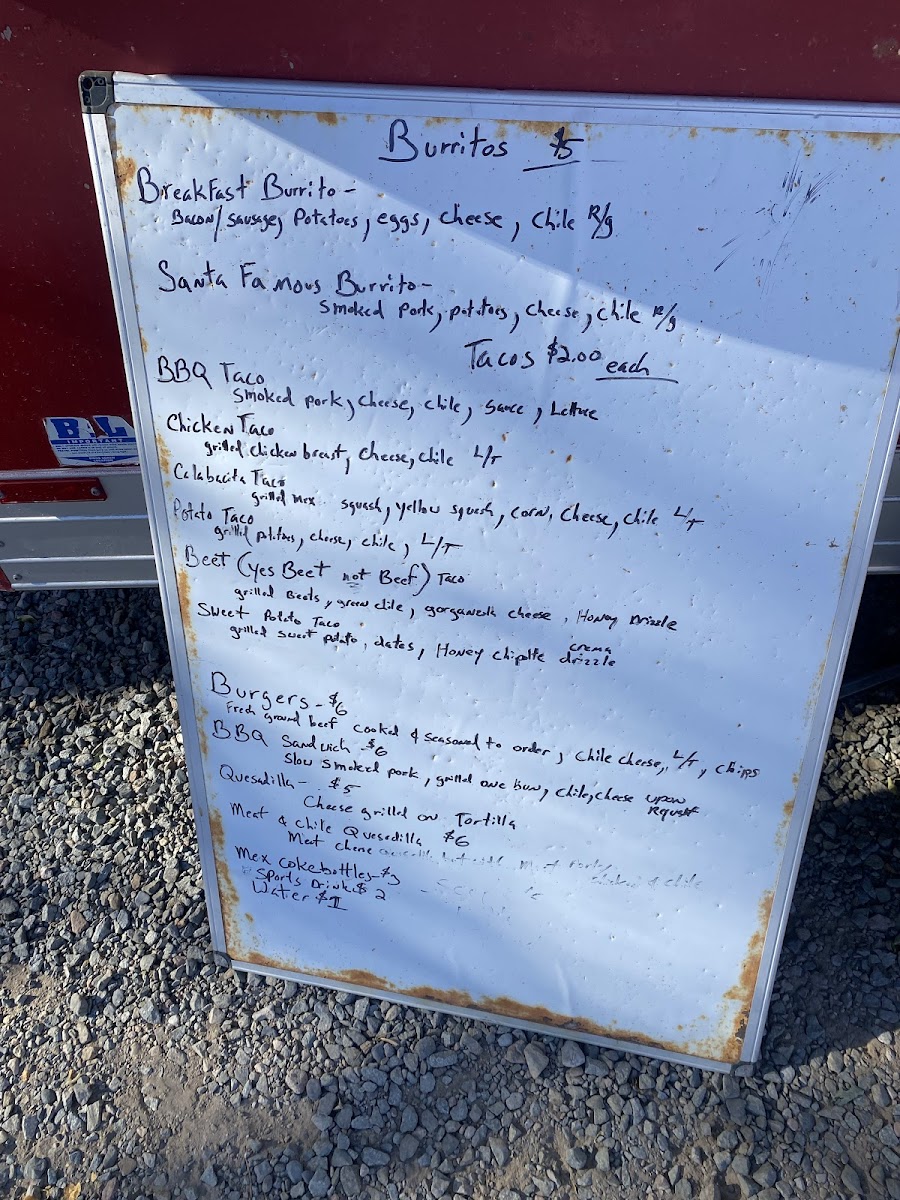 Burritos $5
Breakfast Burrito -
Bacon/sausage, Potatoes, eggs, cheese, chile R/g
Santa Famous Burrito -
Smoked pork, potatoes, cheese, chile R/g
Tacos $2.00 each
BBQ Taco
smoked pork, cheese, chile, sauce, Lettuce
Chicken Taco
grilled chicken breast, cheese, chile L/T
Calabacita Taco
grilled mex squash, yellow squash, corn, cheese, chile L/T
Potato Taco
grilled potatoes, cheese, chile, L/T
Beet (yes Beet not Beef) Taco
grilled Beets, green chile, gorganzola cheese, Honey Drizzle
Sweet Potato Taco
grilled sweet potato, dates, Honey chipotle crema drizzle
Burgers - $6
Fresh ground beef cooked & seasoned to order, chile cheese, L/T, chips
BBQ Sandwich - $6
Slow smoked pork, grilled bun, chile, cheese upon Request
Quesadilla - $5
Cheese grilled on Tortilla
Meat & chile Quesadilla $6
Meat
Mex coke bottles - $3
Sports Drink $2
Water $1
B L
IMPORTANT